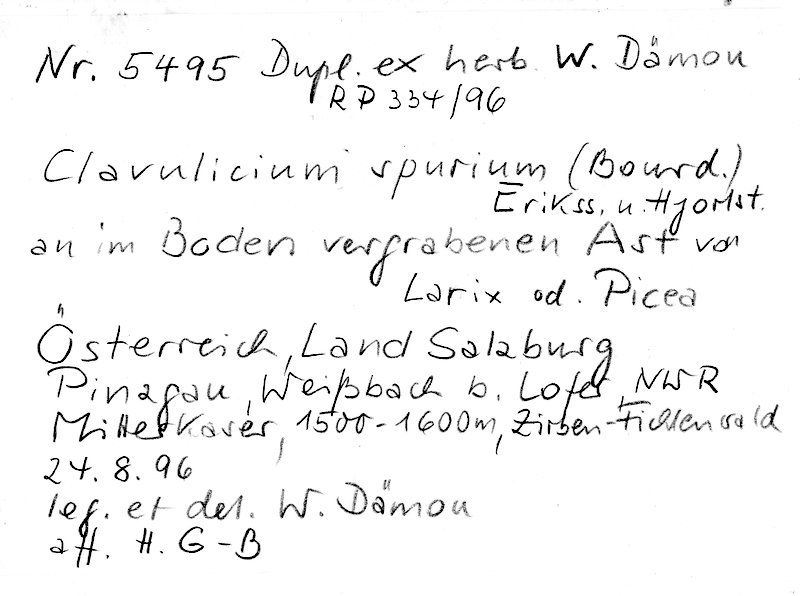 Nr. 5495 Dupl. ex herb. W. Dämon
RP 334/96
Clavulicium spurium (Bourd.)
Erikss. u. Hjortst.
an im Boden vergrabenen Ast von
Larix od. Picea
Österreich, Land Salzburg
Pinzgau, Weißbach b. Lofer, NWR
Mitterkaser, 1500-1600m, Zirben-Fichtenwald
24.8.96
leg. et det. W. Dämon
aff. H. G-B